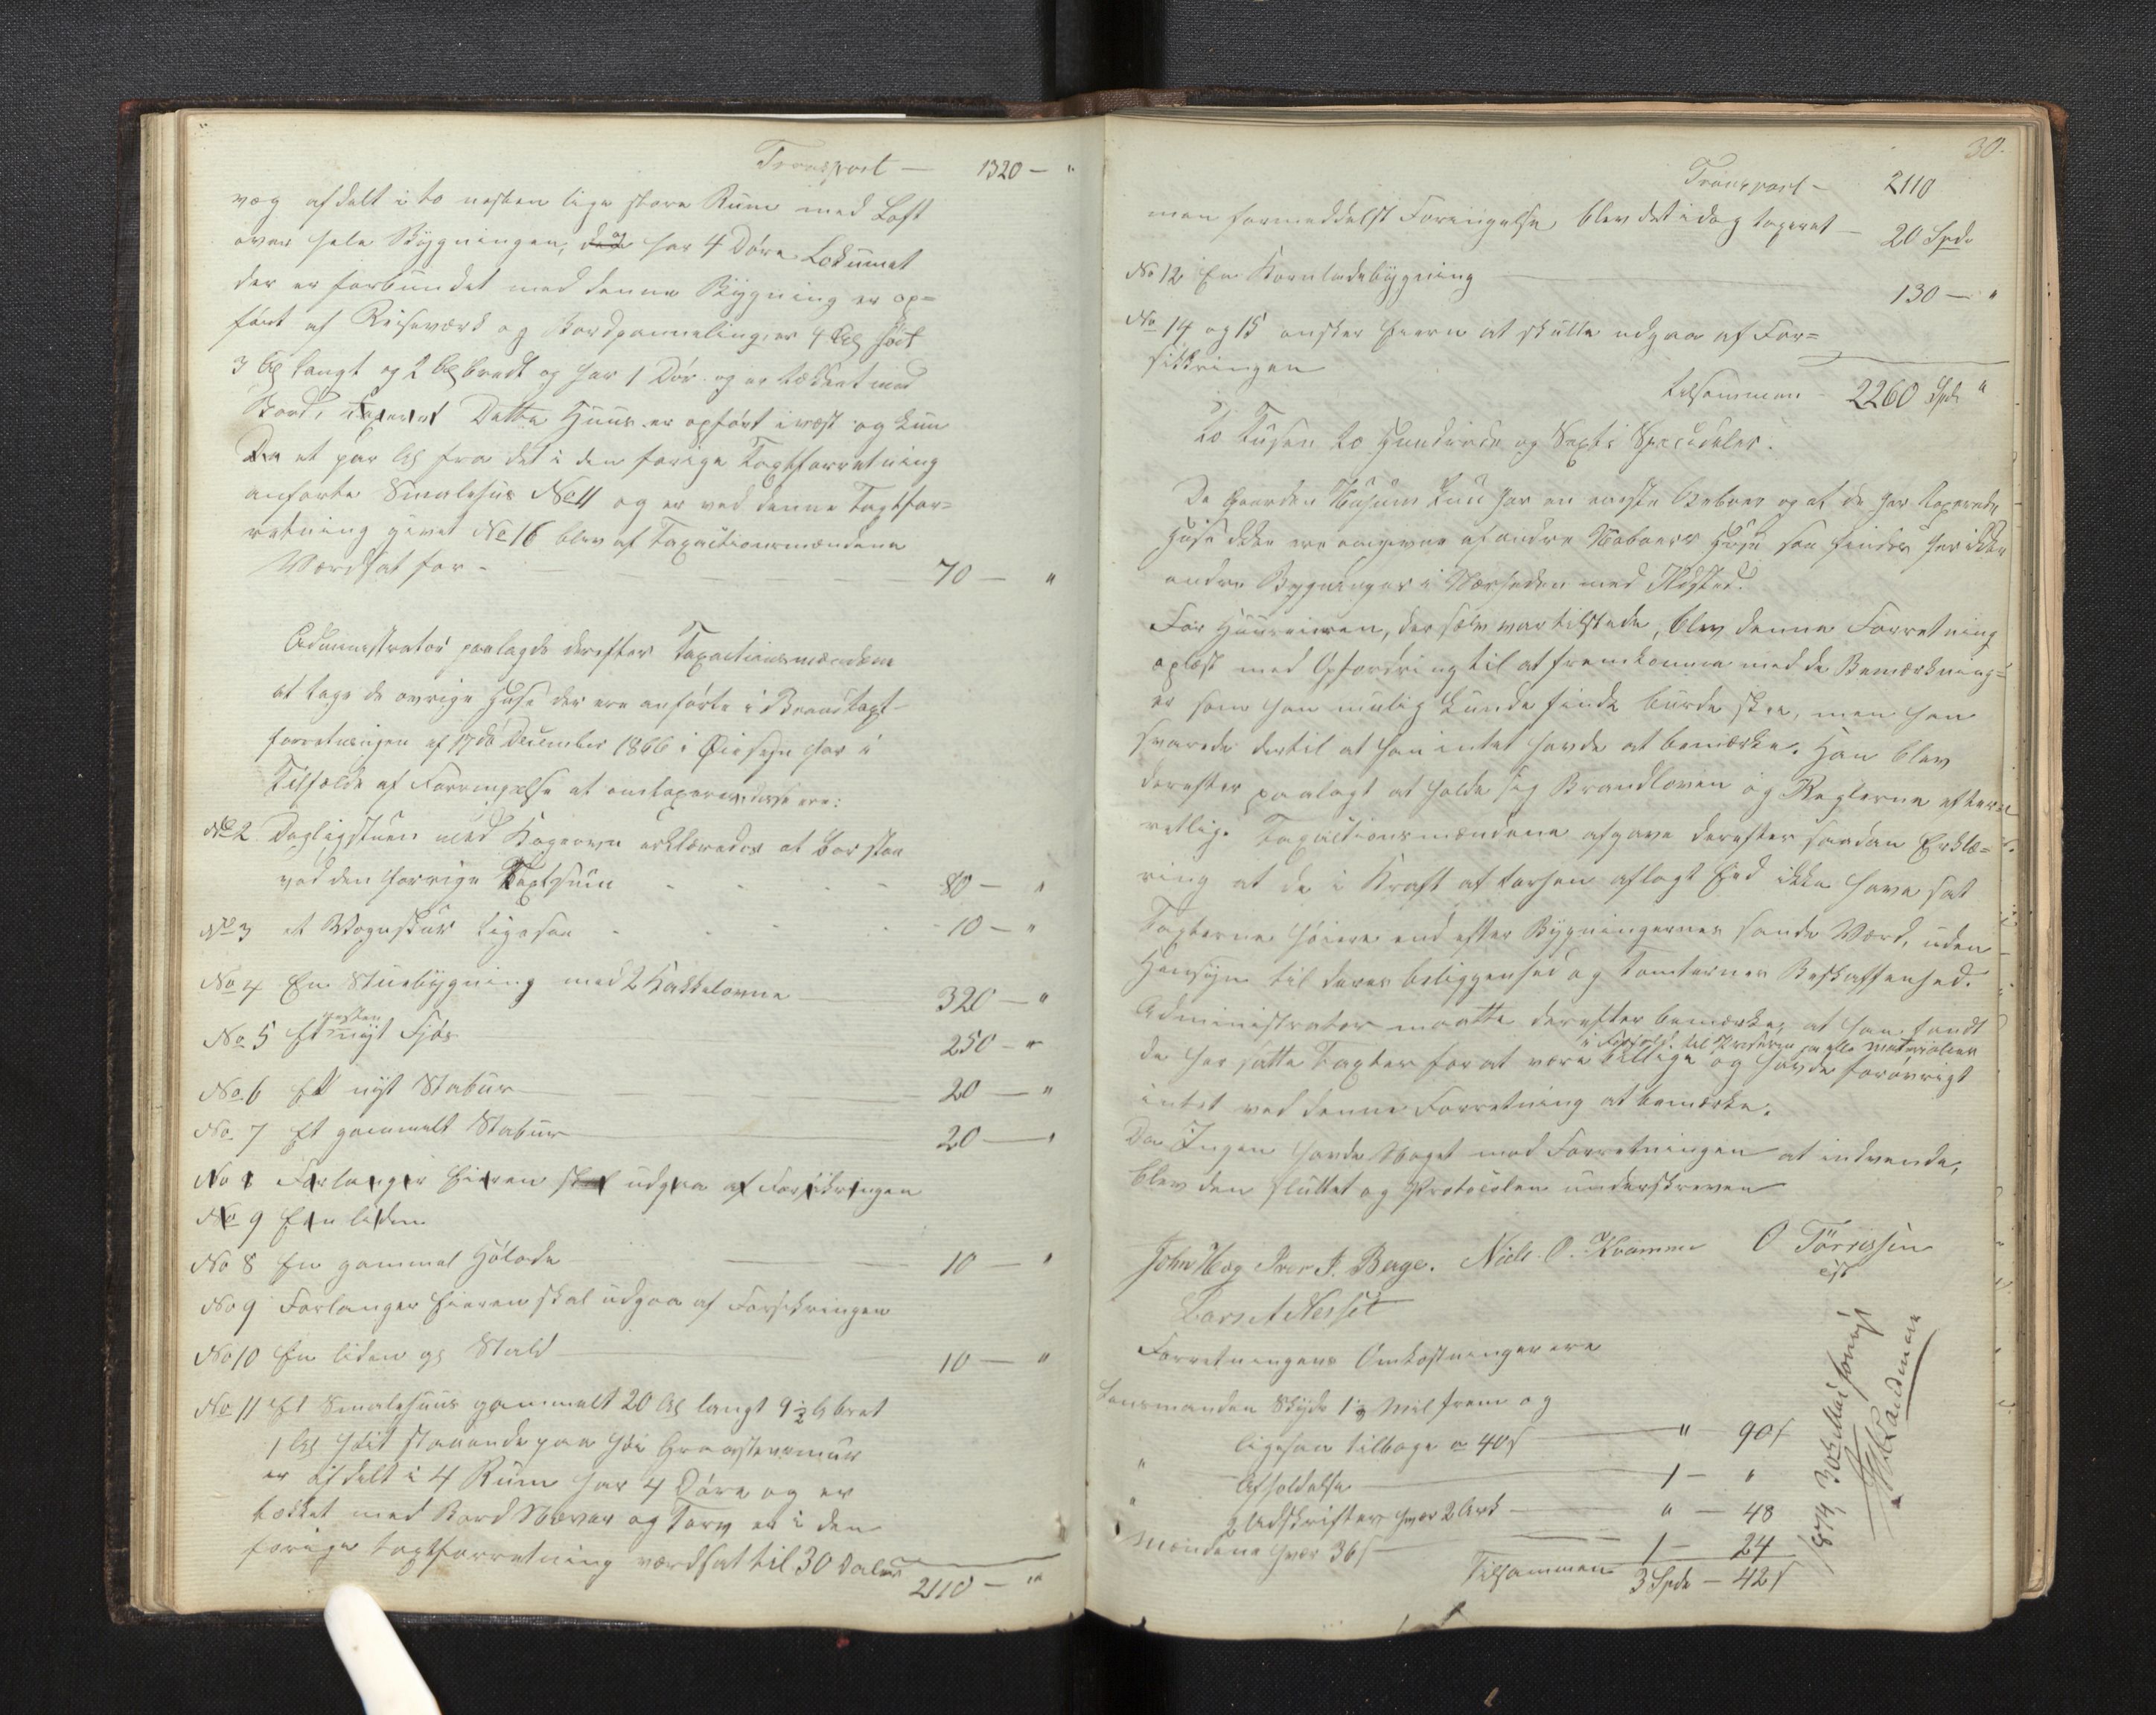 Transport — 1320 — "
væg afdelt i to nesten lige store Rum med Loft
over hele Bygningen, og har 4 Döre Lokumet
der er forbundet med denne Bygning er op=
fört af Reisverk og Bordpanneling, er 4 Al höit
3 Al langt og 2 Al bredt og har 1 Dör og er tækket med
Bord, Dette Huus er opfört ivest og kun
et par Al fra det i den forige Taxtforretning
anförte Smalehus No 11 og er ved denne Taxtfor=
retning givet No 16 blev af Taxationsmændene
Værdsat for - 70 — "
Administrator paalagde derefter Taxationsmændene
at tage de øvrige Huse der ere anförte i Brandtaxt-
forretningen af 17de December 1866 i Øiesyn for i
Tilfælde af Forringelse at omtaxeres, disse ere:
No 2 Dagligstuen med Kogeovn erklæredes at bør staa
ved den forrige Taxtsum - - - - 80 — "
No 3 et Vognskur ligesaa - - - - 10 — "
No 4 En Stuebygning med 2 Kakkelovne — 320 — "
No 5 Et nesten nyt Fjös 250 — "
No 6 Et nyt Stabur — 20 — "
No 7 Et gammelt Stabur — 20 — "
No 8 Forlanger Eieren skal udgaa af Forsikringen
No 9 En liden
No 8 En gammel Hölade — 10 — "
No 9 Forlanger Eieren skal udgaa af Forsikringen
No 10 En liden gl Stald — 10 — "
No 11 Et Smalehuus gammelt 20 Al langt 9 1/2 Al bret
1 Al höit staaende paa höi Graasteensmuur
er afdelt i 4 Rum har 4 Döre og er
tækket med Bord Næver og Torv er i den
forige taxtforretning værdsat til 30 Daler
2110 — "
30.
Transport — 2110
men formeddelst Foringelse, blev det idag taxeret — 20 Spd.
No 12 En Kornladebygning — 130 — "
No 14 og 15 ønsker Eieren at skulle udgaa af For=
sikringen
tilsammen — 2260 Spd "
to Tusen to Hundrede og Sexti Speciedaler.
Da Gaarden Husum kun har en eneste Beboer og at de her taxerede
Huse ikke ere omgivne af andre Naboers Huse saa findes her ikke
andre Bygninger i Nærheden med Ildsted.
For Huuseieren, der selv var tilstede, blev denne Forretning
oplæst med Opfordring til at fremkomme med de Bemærkning=
er som han mulig kunde finde burde skee, men han
svarede dertil at han intet havde at bemærke. Han blev
derefter paalagt at holde sig Brandloven og Reglerne efter=
rettelig. Taxationsmændene afgave derefter saadan Erklæ=
ring at de i Kraft af forhen aflagt Eed ikke have sat
Taxterne höiere end efter Bygningernes sande Værd, uden
Hensyn til deres beliggenhed og Tomternes Beskaffenhed.
Administrator maatte derefter bemærke, at han fandt
i Forhold til Priserne paa alle materialier
de her satte Taxter for at være billige og havde forøvrigt
intet ved denne Forretning at bemærke.
Da Ingen havde Noget mod Forretningen at indvende,
blev den sluttet og Protocolen underskreven
John Næs Iver J. Berge. Niels O. Kvamme O Törrissen
Lars A Nesset
Forretningens Omkostninger ere
Lensmanden Skyds 1 1/8 Mil frem og
ligesaa tilbage a 40 s — " 90 s
" Afholdelse — 1 — "
" 2 Udskrifter hver 2 Ark — " — 48
Mændene hver 36 s — 1 — 24
Tilsammen 3 Spd — 42 s
1874, 30te Mai